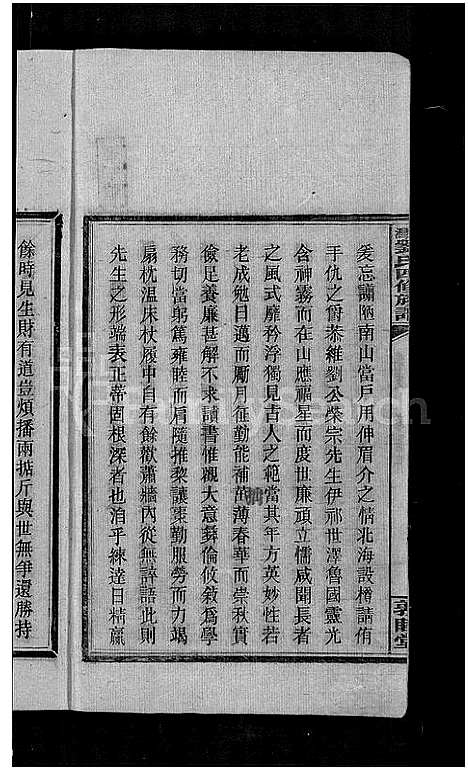 劉氏四修族譜
敦睦堂
爰忘譾陋南山當戶用伸眉介之情北海設樽請侑
手仇之爵恭維劉公榮宗先生伊祁世澤魯國靈光
含神霧而在山應福星而度世廉頑立懦咸聞長者
之風式靡矜浮獨見吉人之範當其年方英妙性若
老成勉日邁而勵月征勤能補茧薄春華而崇秋實
儉足養廉甚解不求讀書惟觀大意彝倫攸敘爲學
務切當躬篤雍睦而肩隨推棃讓棗勤服勞而力竭
扇枕溫床杖履中自有餘歡蕭牆內從無誶語此則
先生之形端表正蒂固根深者也洎乎練達日精贏
餘時見生財有道豈煩播兩掂斤與世無爭還勝持
FamilySearch